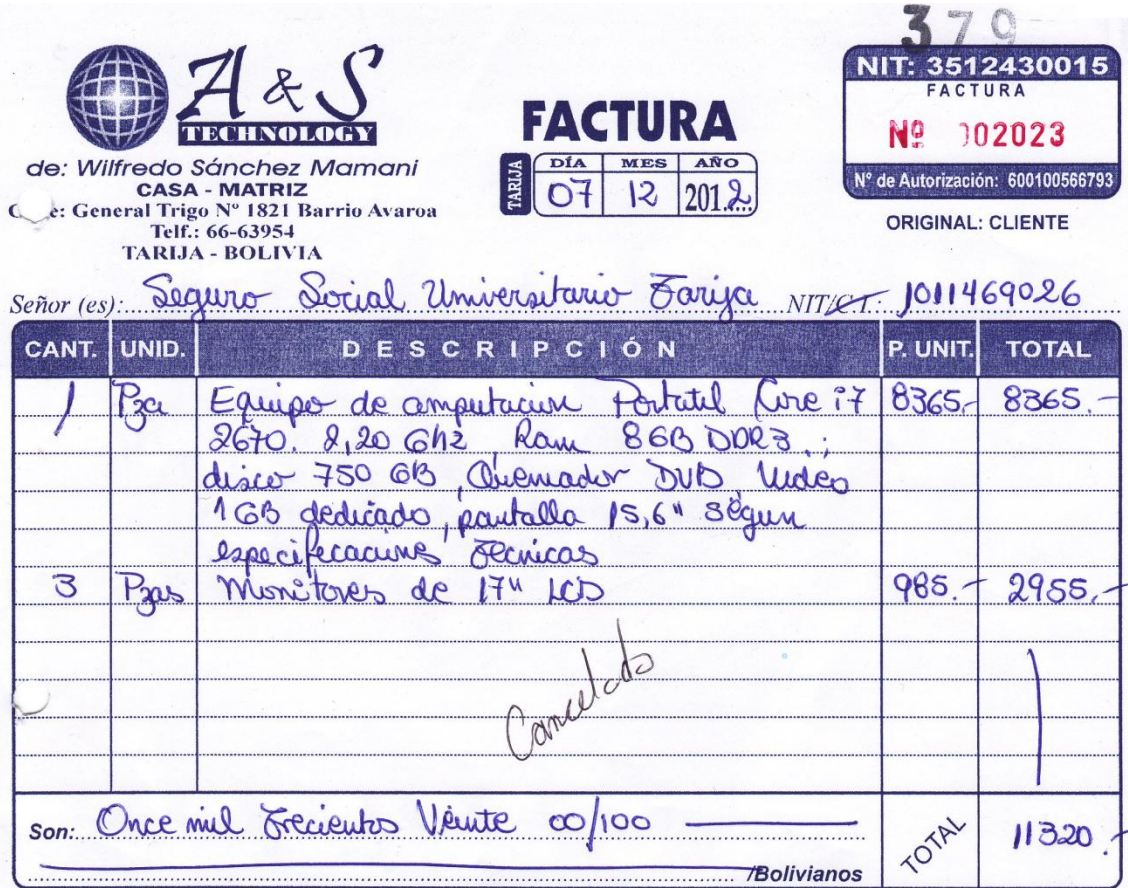 379
A & S
TECHNOLOGY
de: Wilfredo Sánchez Mamani
CASA - MATRIZ
e: General Trigo Nº 1821 Barrio Avaroa
Telf.: 66-63954
TARIJA - BOLIVIA
FACTURA
TARIJA
DÍA MES AÑO
07 12 2012
NIT: 3512430015
FACTURA
Nº 002023
Nº de Autorización: 600100566793
ORIGINAL: CLIENTE
Señor (es): Seguro Social Universitario Tarija NIT/C.I.: 1011469026
CANT. UNID. DESCRIPCIÓN P. UNIT. TOTAL
1 Pza Equipo de computacion Portatil Core i7 8365.- 8365.-
2670. 2,20 Ghz Ram 8GB DDR3,
disco 750 GB, Quemador DVD Video
1GB dedicado, pantalla 15,6" segun
especificaciones Tecnicas
3 Pzas Monitores de 17" LCD 985.- 2955.-
Cancelado
Son: Once mil Trecientos Veinte 00/100
/Bolivianos
TOTAL 11320.-